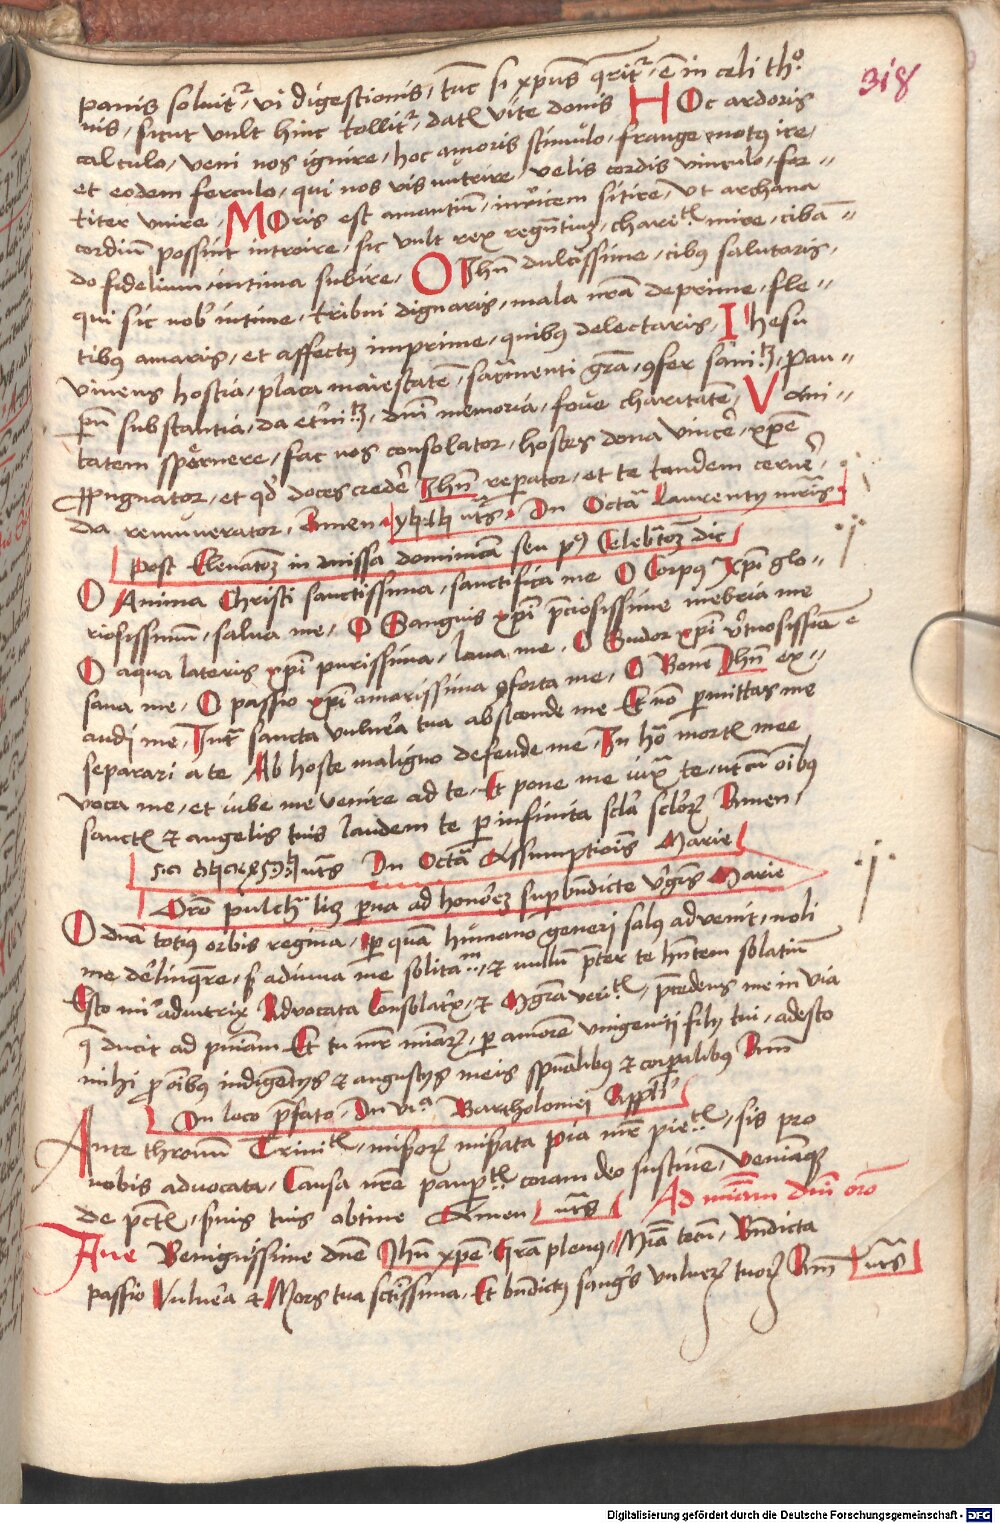 318
panis soluitr, vi digestionis, tūc si xpūs qritr, ē in celi tho
nis, sicut vult hinc tollitr, datl vite donis HOc ardoris
calculo, veni nos ignire, hoc amoris stimulo, frange motus ire,
et eodem ferculo, qui nos vis nutrire, velis cordis vinculo, for-
titer vnire. MOris est amantiū, inuicem sitire, vt archana
cordiū possint introire, sic vult rex regntiū, charitl mire, ciban-
do fidelium, intima subire. O Ihū dulcissime, cibus salutaris,
qui sic nob intime, tribui dignaris, mala nrā deprime, fle-
tibus amaris, et affectus imprime, quibus delectaris, Ihesu
vinens hostia, placa maiestatē, sacmenti grā, ꝯfer sanitz, pan-
pm substantia, da etnitz, dni memoria, foue charitatē, Vani-
tatem spernere, fac nos consolator, hostes dona vincē, xpē
ꝓpugnator, et qd doces credē Ihū reperator, et te tandem cernē,
da remunerator, Amen vts. In Octā Laurenty mrīs
Post Eleuatōz in missa dominica seu ps Celebtōz dic
O Anima Christi sanctissima, sanctifica me O Corpus Xpi glo-
riosissimum, salua me, O Sanguis xpi pciosissime inebria me
O aqua lateris xpi purissima, laua me, O Sudor xpi vtuosissime
sana me, O passio xpi amarissima ꝯforta me, O Bone Ihū ex-
audi me, Intra sancta vulnera tua absconde me Et nō pmittas me
separari a te Ab hoste maligno defende me, In hō mortl mee
voca me, et iube me venire ad te, Et pone me iuxta te, ut cū oībus
sanctl et angelis tuis laudem te p infinita scla sclor Amen,
vts In Octā Assumptiōis Marie
Orō pulch lis pura ad honorez supbndicte vgīs Marie
O dnā totius orbis regina, p quam humano generi salus aduenit, noli
me delinquere, s adiuua me solita, et nullū pter te hntem solatiū
Esto mi adiutrix Aduocata Consolatrx, et Mgrā veritl, pcedens me in via
q ducit ad pniam Et tu mr miar, p amorē vnigeniti filij tui, adesto
mihi p oībus indigentijs et angustijs meis spualibus et corpalibus Amē
In loco pfato, In via Bartholomej Appli
Ante thronū Trinitl, misor miserata pia mr pietl, sis pro
nobis aduocata, Causa nre paupertl coram deo sustine, Veniamque
de pctl, suis tuis obtine Amen vts Ad miam dni orō
Aue Benignissime dnē Ihū xpē Grā plenus, Mia tecū, Bndicta
passio Vulnera et Mors tua sctissima, Et bndictus sangs vulner tuor Amē vts
Digitalisierung gefördert durch die Deutsche Forschungsgemeinschaft - DFG